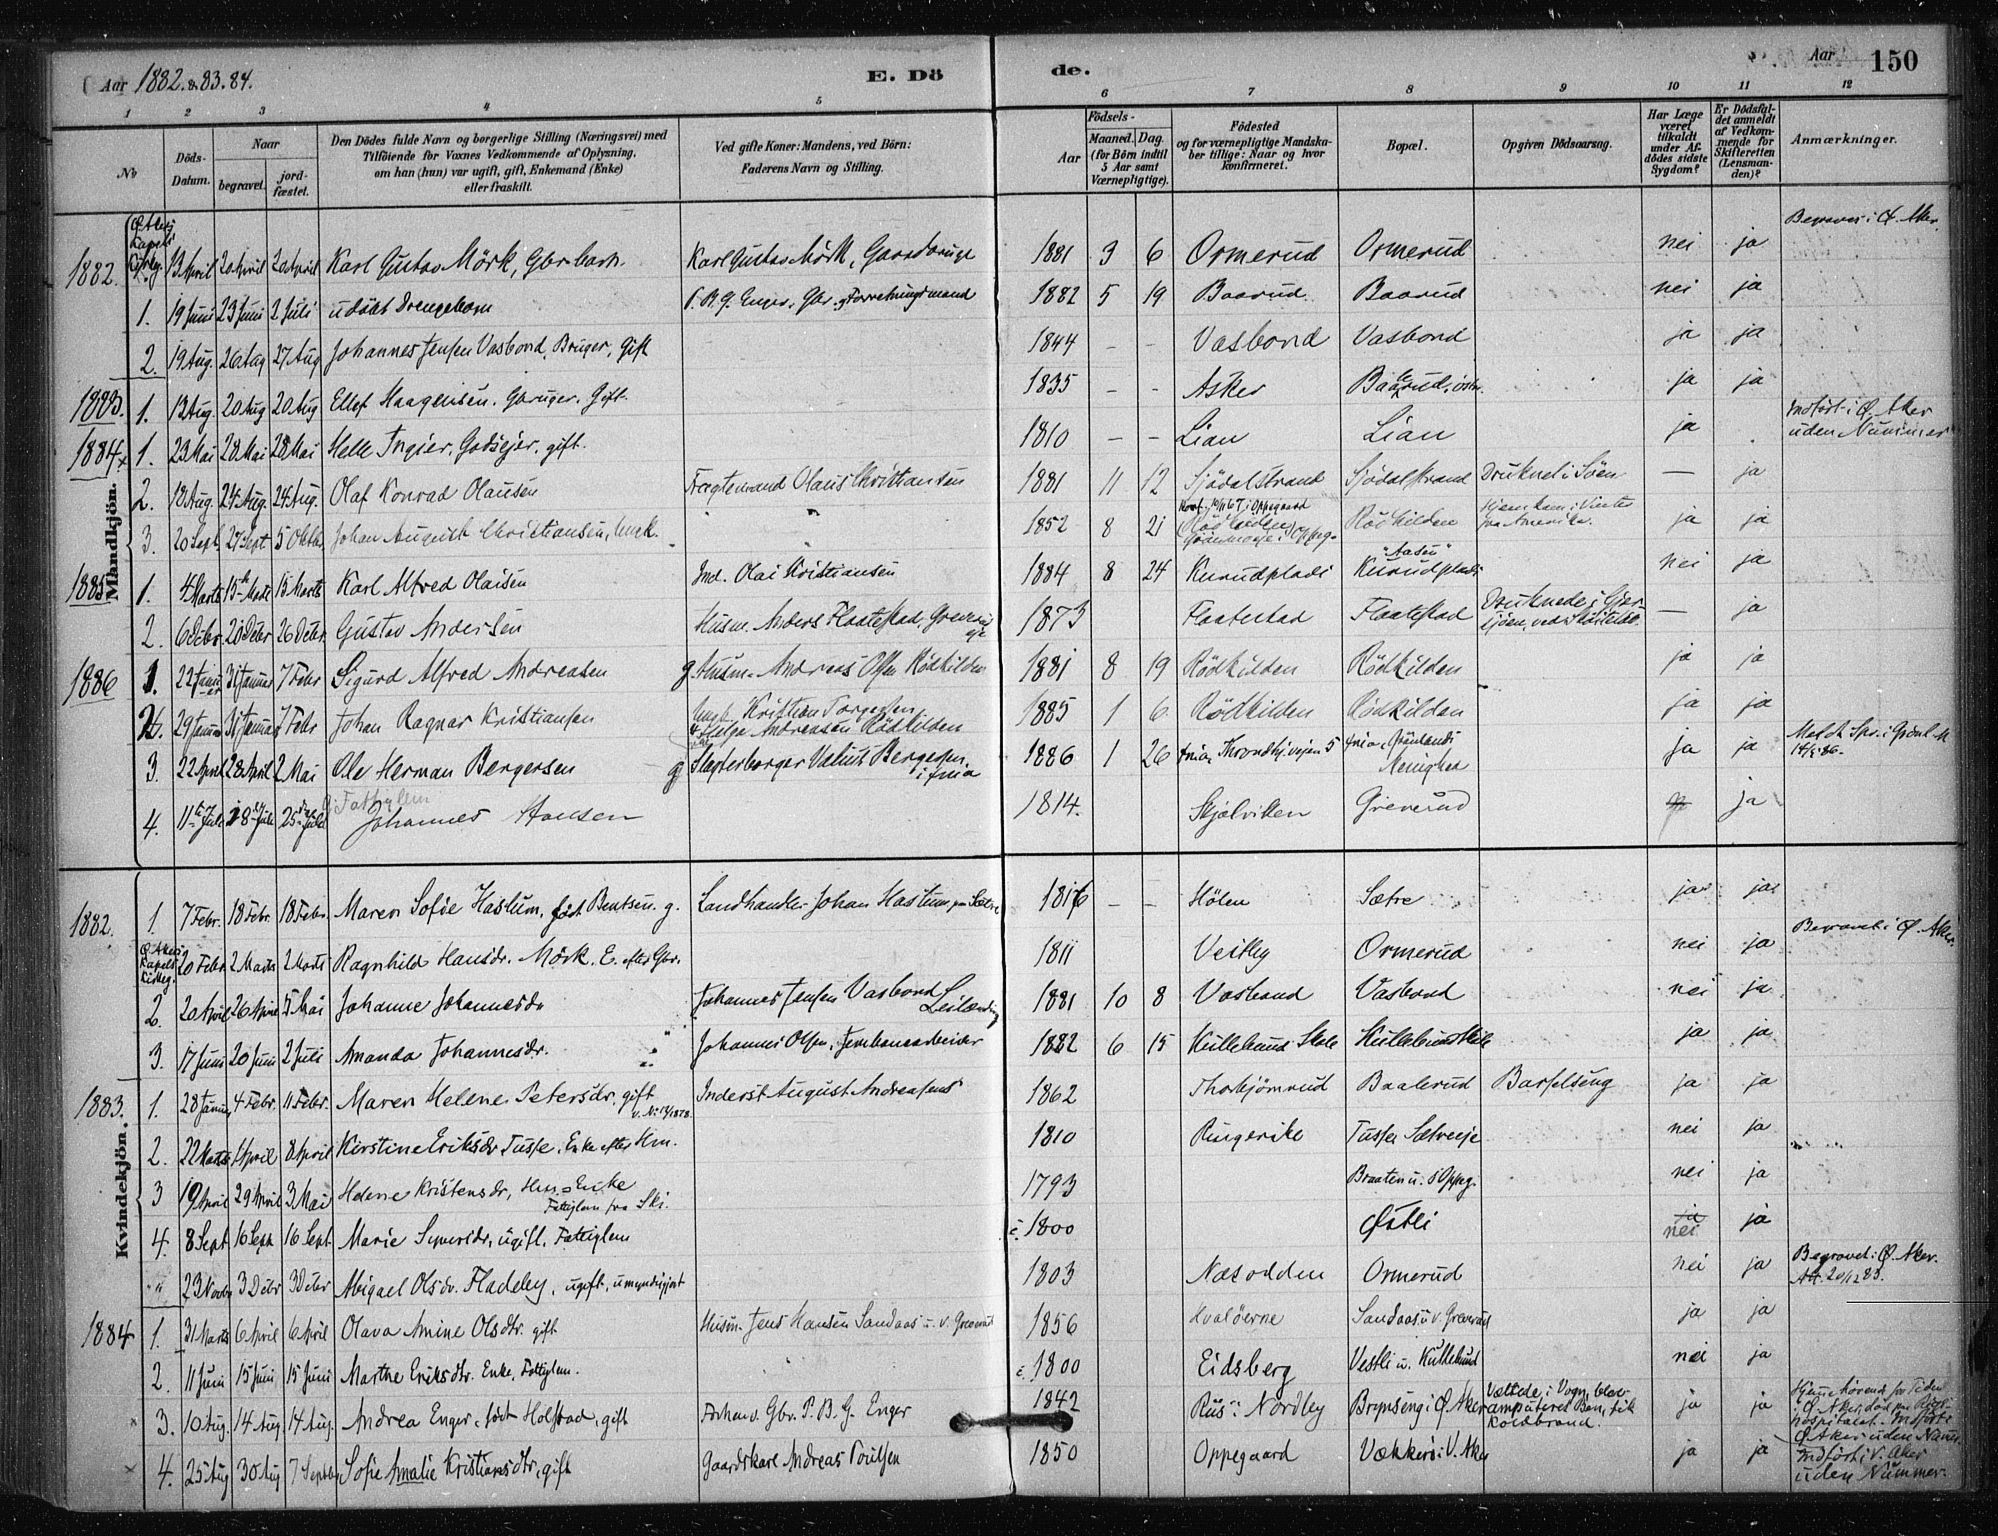 Aar 1882. & 83. 84.
E. Dö
de.
Aar
150
1 2 3 4 5 6 7 8 9 10 11 12
No
Döds-
Datum.
Naar
begravet.
jord-
fæstet.
Den Dödes fulde Navn og borgerlige Stilling (Næringsvei) med
Tilföiende for Voxnes Vedkommende af Oplysning,
om han (hun) var ugift, gift, Enkemand (Enke)
eller fraskilt.
Ved gifte Koner: Mandens, ved Börn:
Faderens Navn og Stilling.
Födsels-
Aar
Maaned. Dag.
(for Börn indtil
5 Aar samt
Værnepligtige).
Födested
og for værnepligtige Mandska-
ber tillige: Naar og hvor
konfirmeret.
Bopæl.
Opgiven Dödsaarsag.
Har Læge
været
tilkaldt
under Af-
dödes sidste
Sygdom?
Er Dödsfal-
det anmeldt
af Vedkom-
mende for
Skifteretten
(Lensman-
den)?
Anmærkninger.
Mandkjön.
1882. Ø. Akers Kapels Kirkeg. 13 April 20 April 20 April Karl Gustav Mörk, Gbr barn Karl Gustav Mörk, Gaardbruger 1881 3 6 Ormerud Ormerud nei ja Begravet i Ø. Aker.
1. 19 Juni 23 Juni 2 Juli udöbt Drengebarn P. B. G. Enger, Gbr. og Forretningsmand 1882 5 19 Baarud Baarud nei ja
2. 19 Aug. 26 Aug 27 Aug Johannes Jensen Vasbond, Bruger, Gift 1844 - - Vasbond Vasbond ja ja
1883. 1. 13 Aug. 20 Aug 20 Aug Ellef Haagensen. Gbruger. Gift. 1835 - - Asker Baalerud, östre. ja ja
1884 x 1. 23 Mai 28 Mai 28 Mai Helle Ingier, Godseier, gift. 1810 - - Lian Lian ja Indfört i Ø. Aker
uden Nummer
2. 18 Aug. 24 Aug. 24 Aug. Olaf Konrad Olausen Fragtemand Olaus Christiansen 1881 11 12 Sjödalstrand Sjödalstrand Druknet i Söen - ja
3. 20 Sept. 27 Sept 5 Oktbr Johan August Christiansen, Ungk. 1852 8 21 Konf. 10/11 67 i Oppegaard Rödkilden ja ja
Hjemkom i Vinter
fra Amerika.
1885 1. 4 Marts 15 Marts 15 Marts Karl Alfred Olaisen Ind. Olai Kristiansen 1884 8 24 Kurudplads "Aasen" Kurudplads nei ja
2. 6 Debr 20 Debr 26 Debr Gustav Andersen Husm. Anders Flaatestad, Greverud eje 1873 Flaatestad Flaatestad Druknede i Gjer-
sjöen, - ja
1886 1. 22 Januar 31 Januar 7 Febr Sigurd Alfred Andreasen g Husm. Andreas Olsen Rödkilden 1881 8 19 Rödkilden Rödkilden ja ja
2. 29 Januar 31 Januar 7 Febr Johan Ragnar Kristiansen Ungk. Kristian Torgersen
& Helga Andreasen Rödkilden 1885 1 6 Rödkilden Rödkilden ja ja
3. 22 April 28 April 2 Mai Ole Herman Bergersen g Slagterborger Valius Bergersen
i Xnia 1886 1 26 Xnia, Throndhj.vejen 5 Xnia, Grönlands
Menighed ja ja Meldt Spr. i Grönl. M
14/5 86.
4. 11te Juli 18de Juli 25de Juli Fattiglem
Johannes Hansen 1814. Skjelviken Greverud ja
Kvindekjön.
1882. 1. 7 Febr. 18 Febr. 18 Febr. Maren Sofie Haslum, födt Bentsen. g. Landhandler Johan Haslum paa Sætre 1816 - - Hölen Sætre ja ja
Ø. Akers Kapels Kirkeg. 20 Febr 2 Marts 2 Marts Ragnhild Hansdr. Mörk. E. efter Gbr. 1811 Vestby Ormerud nei ja Begravet i Ø. Aker.
2. 20 April 26 April 5 Mai Johanne Johannesdr Johannes Jensen Vasbond
Leilænding 1881 10 8 Vasbond Vasbond nei ja
3. 17 Juni 20 Juni 2 Juli Amanda Johannesdr. Johannes Olsen, Jernbanearbeider 1882 6 15 Kullebund Skole Kullebund Skole ja ja
1883. 1. 28 Januar 4 Febr. 11 Febr. Maren Helene Petersdr, gift
v. No 14/1878. Inderst August Andreasens 1862 Thorbjörnrud Baalerud Barselseng ja ja
2. 22 Marts 1 April 8 April Kirstine Eriksdr Tusse, Enke efter Hm. 1810 Ringerike Tussen Sætreeje nei ja
3 19 April 29 April 3 Mai Helene Kristensdr, Hm = Enke
Fattiglem fra Ski. 1793 Braaten u. s Oppeg. nei ja
4. 8 Sept 16 Sept 16 Sept. Marie Syversdr, ugift. Fattiglem c. 1800 Østli ja nei ja
" 23 Novbr 3 Debr 3 Debr Abigael Olsdr. Fladeby, ugift, umyndiggjort 1803 Næsodden Ormerud nei ja Begravet i Ø. Aker.
Att. 20/12 83.
1884 1. 31 Marts 6 April 6 April Olava Amine Olsdtr. gift Husm. Jens Hansen Sandaas u. v. Greverud 1856 Hvalöerne Sandaas u v. Greverud ja ja
2. 11 Juni 15 Juni 15 Juni Marthe Eriksdtr. Enke, Fattiglem. c. 1800 Eidsberg Vestli u. Kullebund nei ja
x 3. 10 Aug. 14 Aug. 14 Aug. Andrea Enger, födt Holstad, gift Forhenv. Gbr. P. B. G. Enger 1842 Riis i Nordby Brynseng i Ø. Aker Væltede i Vogn, blev
amputeret Ben, fik
Koldbrand. ja ja Hjemmehörende for Tiden
i Ø. Aker, död paa Rigs-
hospitalet. Indförte
Ø Aker uden Numr.
x 4. 25 Aug 30 Aug 7 Septbr Sofie Amalie Kristiansdtr, gift Gaardskarl Andreas Poulsen 1850 Oppegaard Vækkerö i V. Aker ja ja Indfört i V. Aker
uden Nummer.